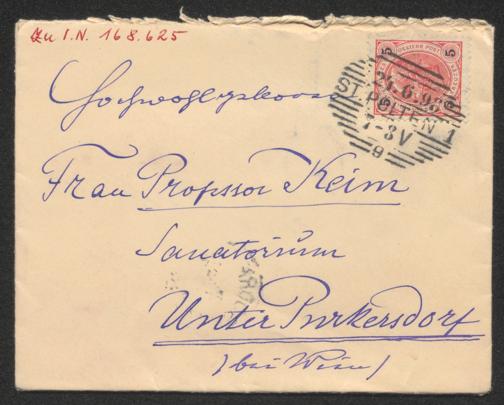 Zu I.N. 168.625
5 5
6.98
ST. PÖLTEN 1
7-8V
9
Hochwohlgeboren
Frau Professor Keim
Sanatorium
Unter Purkersdorf
(bei Wien)